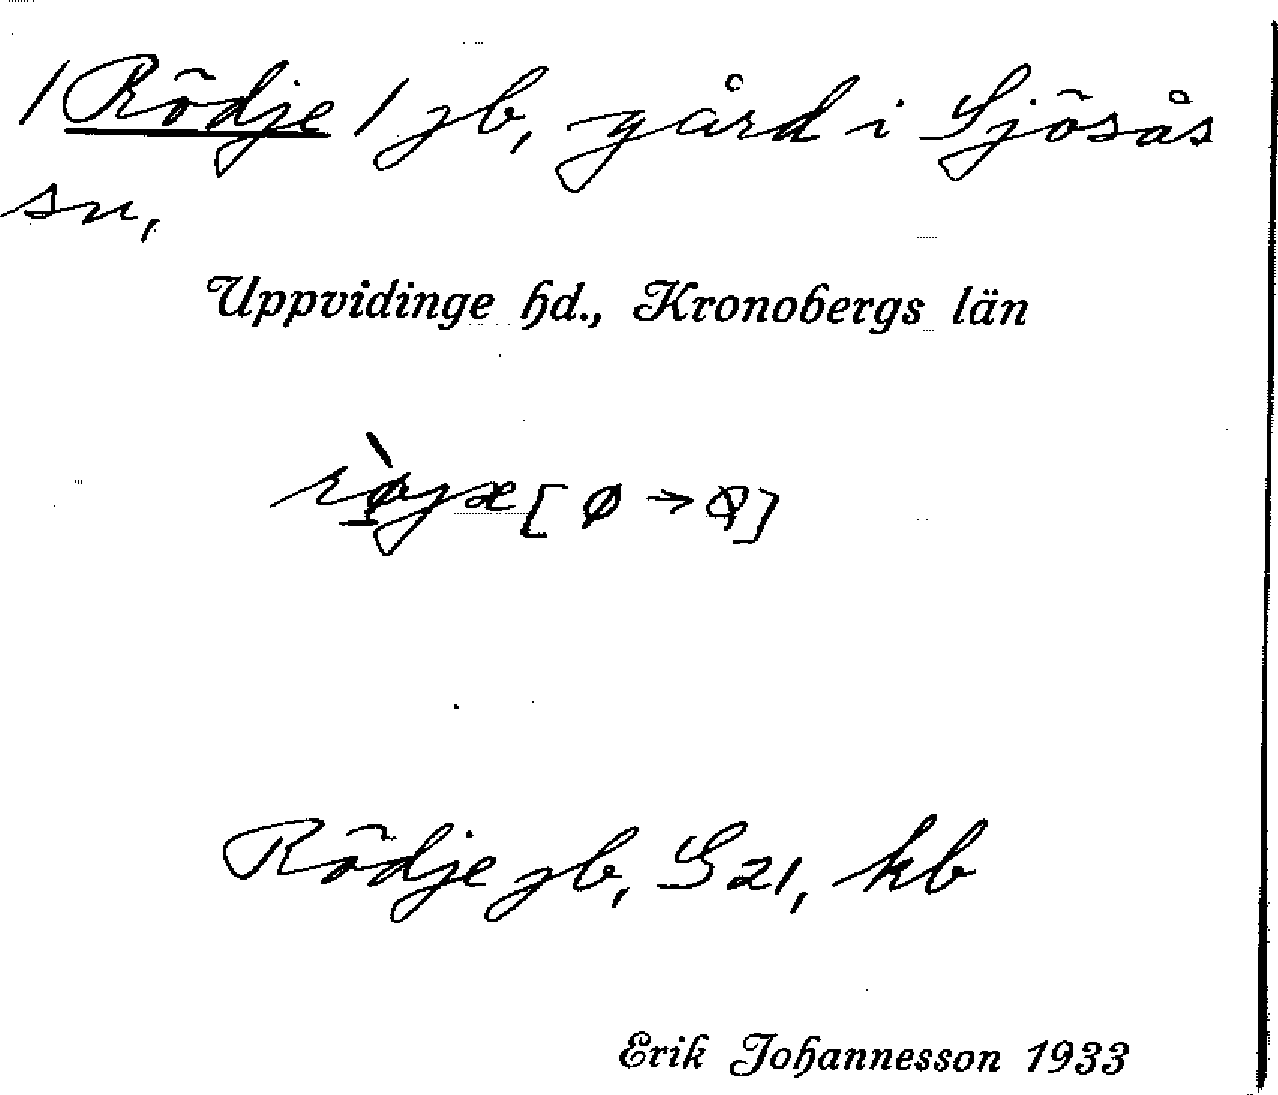 /Rödje/ gb, gård i Sjösås
sn,
Uppvidinge hd., Kronobergs län
rø̀jæ [ø → ]
Rödje gb, G 21, kb
Erik Johannesson 1933